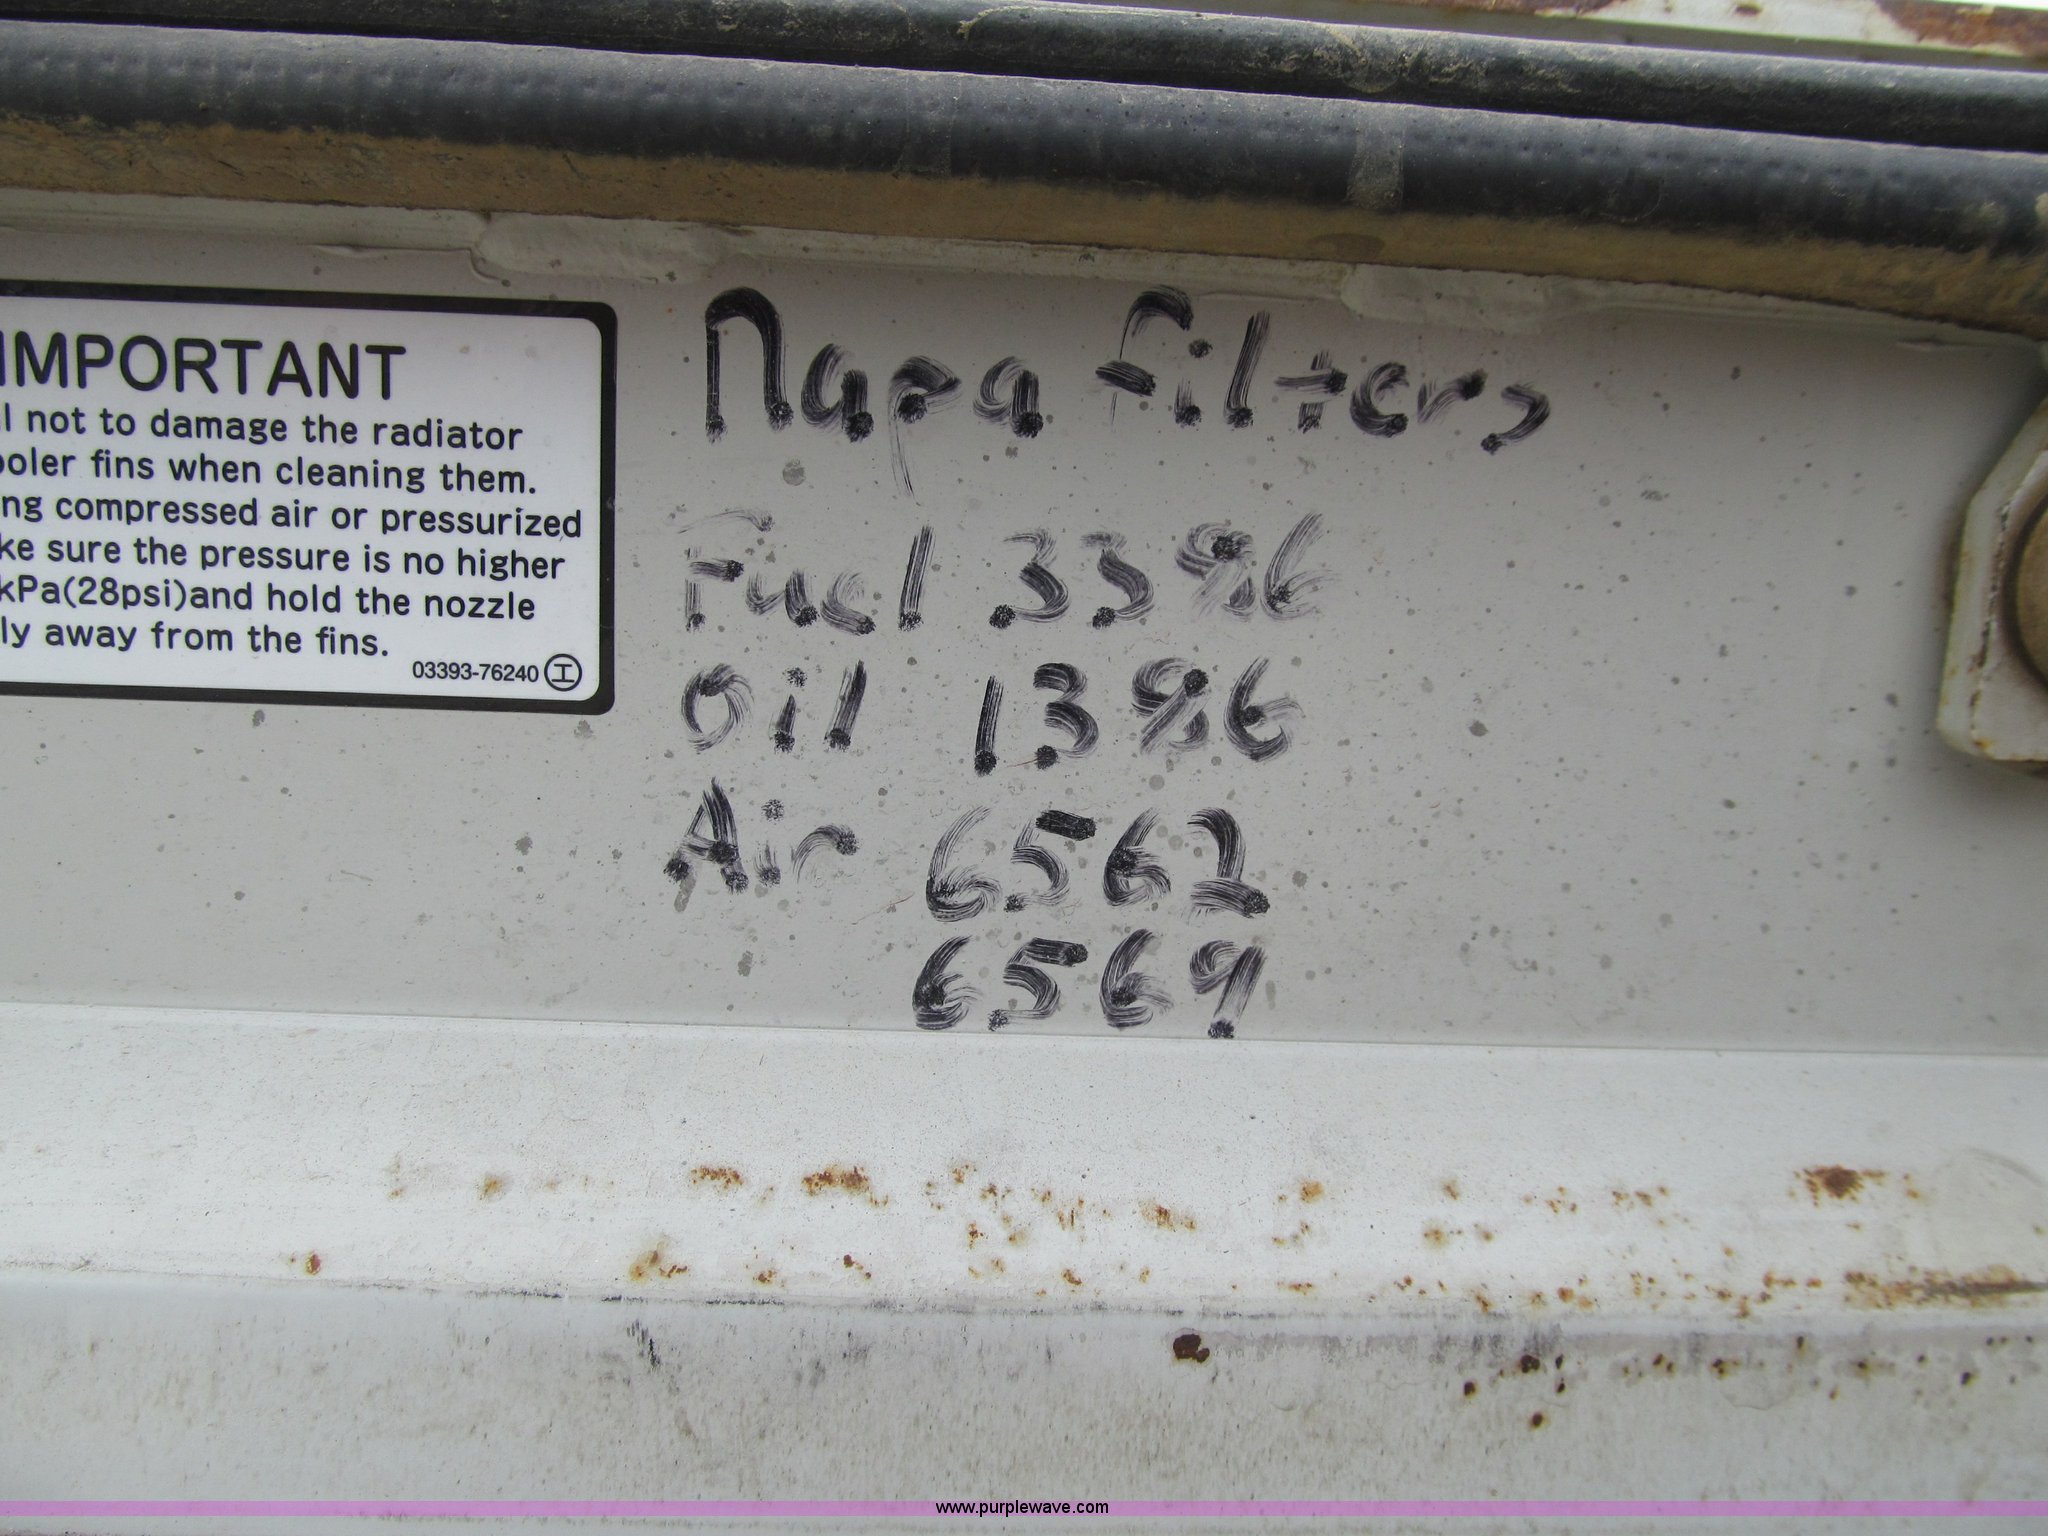 IMPORTANT
l not to damage the radiator
ooler fins when cleaning them.
ng compressed air or pressurized
ke sure the pressure is no higher
kPa(28psi)and hold the nozzle
ly away from the fins.
03393-76240
Napa filters
Fuel 3386
oil 1386
Air 6562
6569
www.purplewave.com